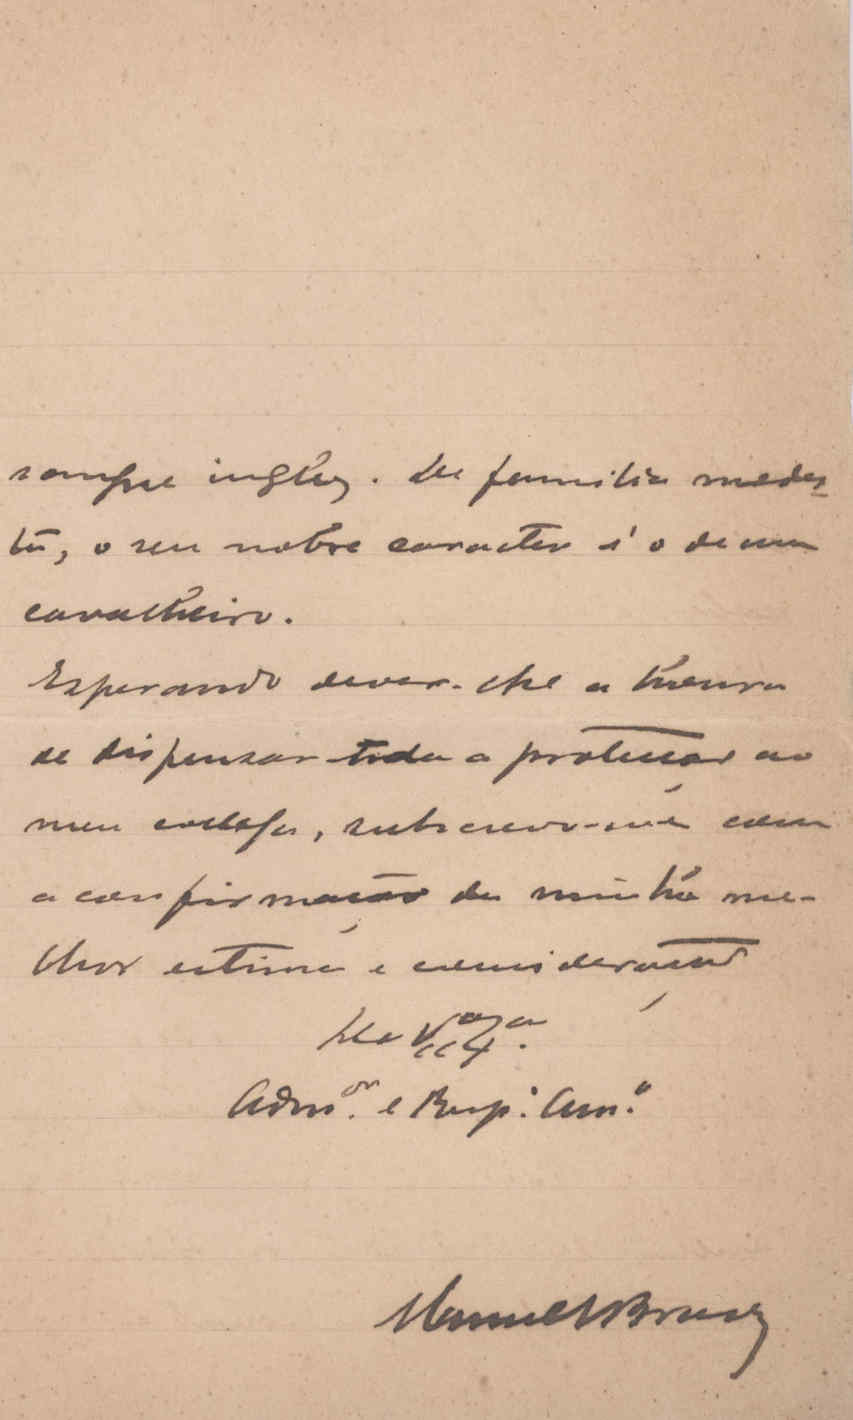 sangue inglez. De familia modes-
ta, o seu nobre caracter é o de um
cavalheiro.
Esperando dever-lhe a honra
de dispensar toda a protecção ao
meu collega, subscrevo-me com
a confirmação da minha me-
lhor estima e consideração
De V. Exa.
Admor. e Resp.º Am.º
Manuel